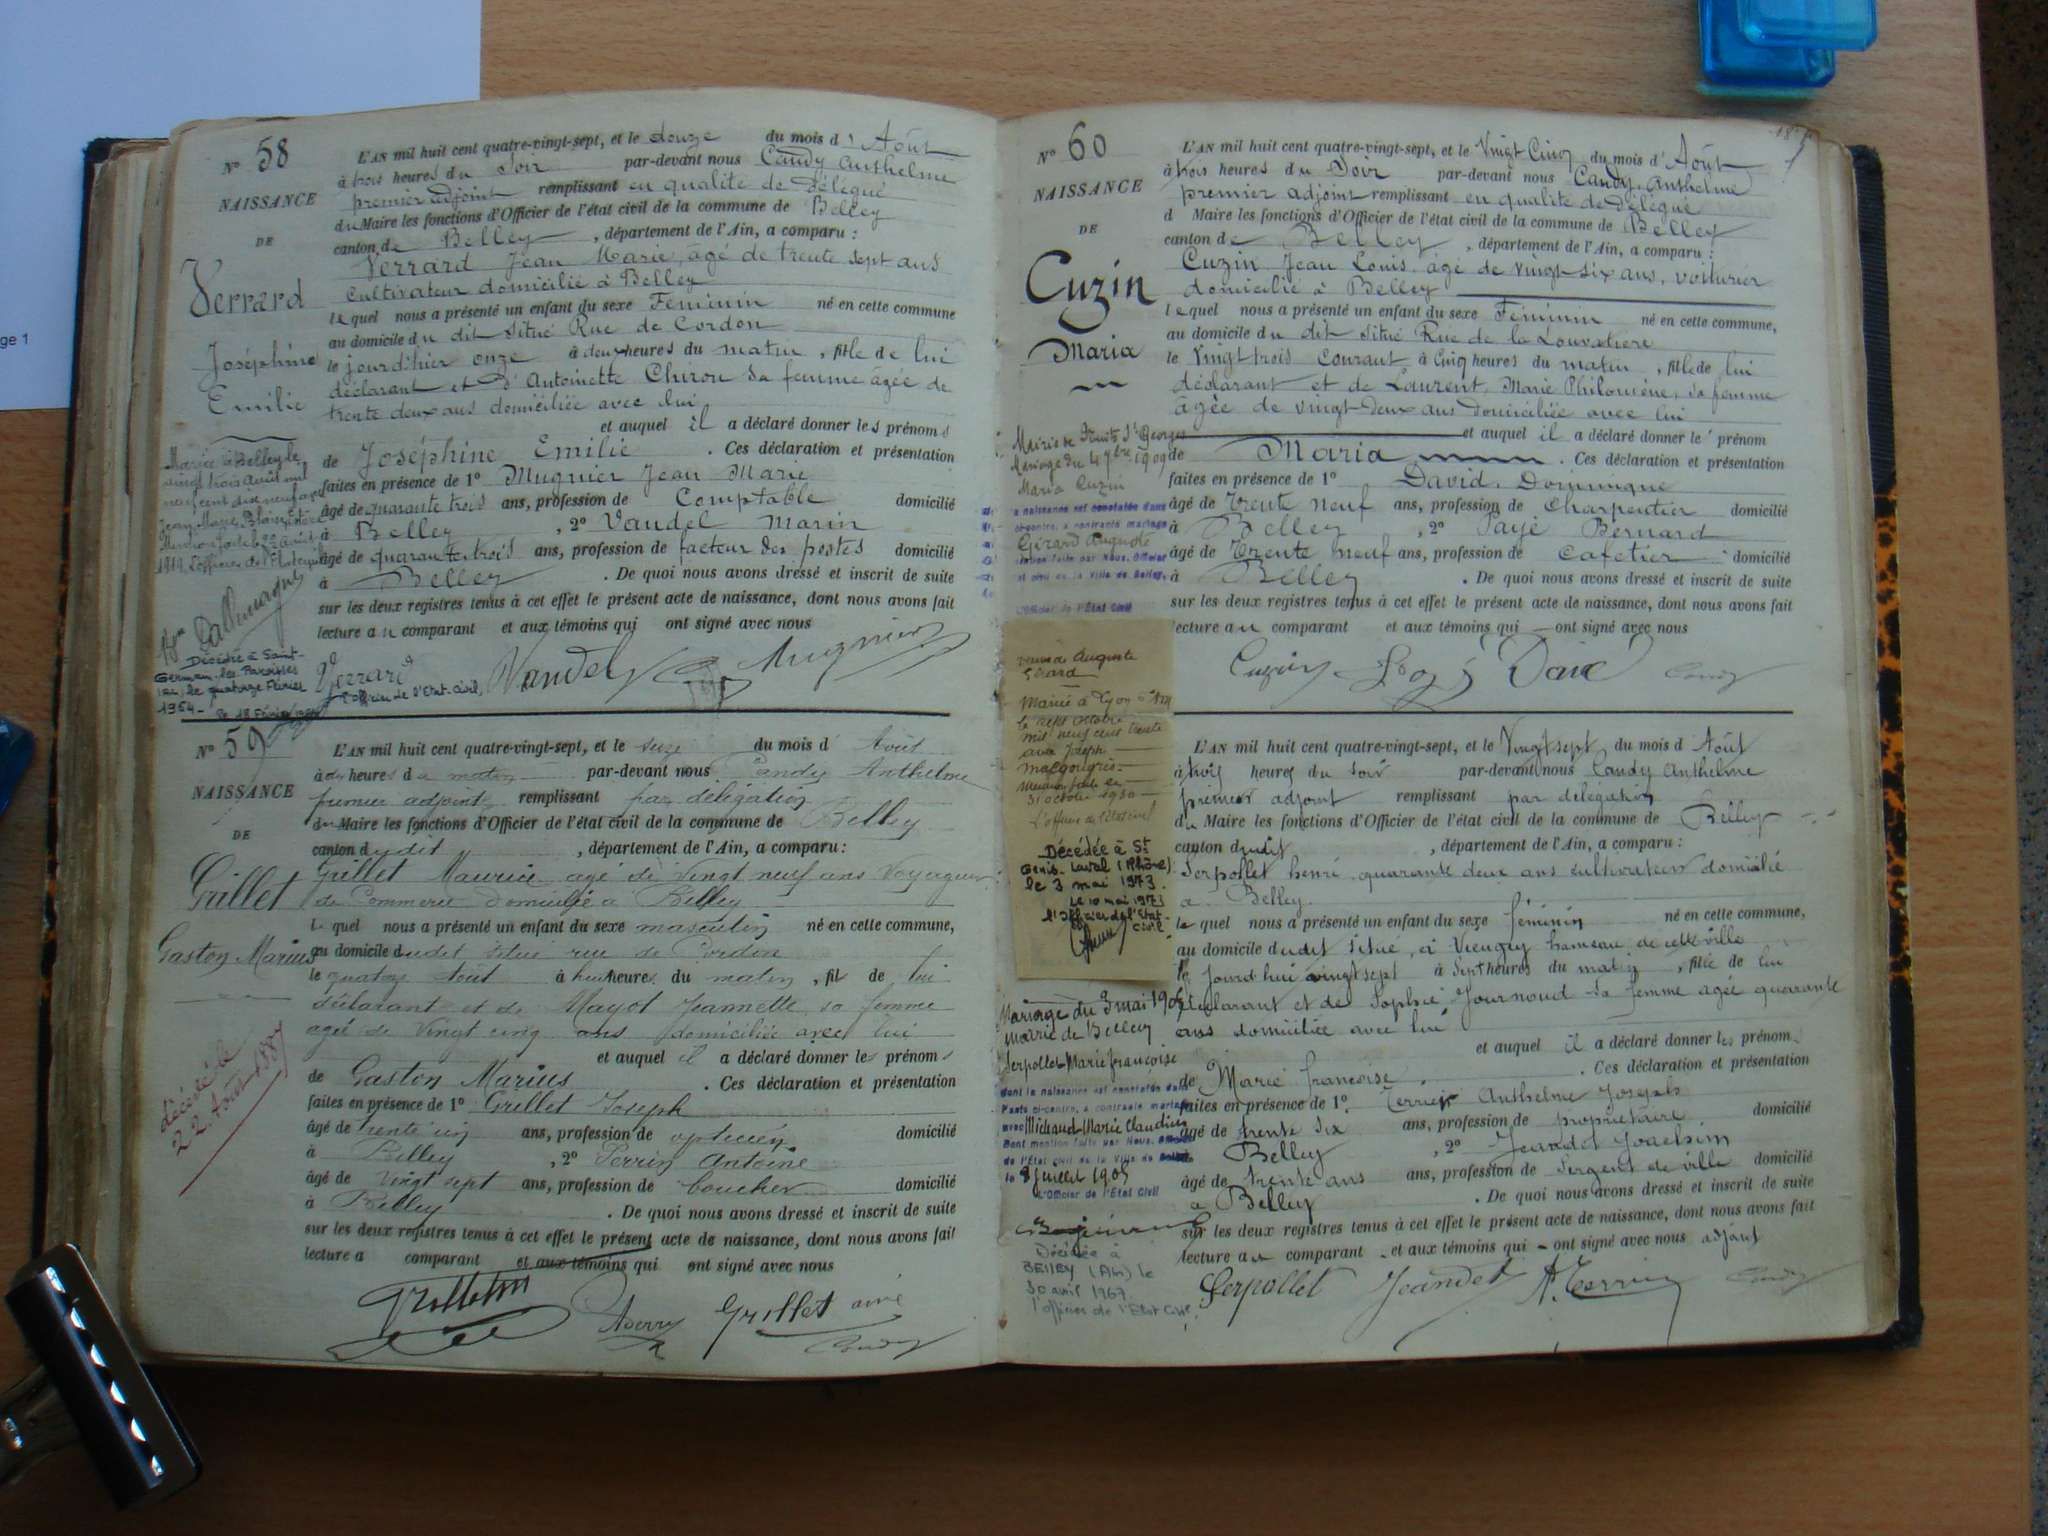 ge 1
N° 58
NAISSANCE
DE
Verrard
Joséphine
Emilie
Mariée à Belley le
vingt trois août mil
neuf cent dix neuf avec
Jean Marie
1919, L'officier de l'Etat civil
Décédée à Saint-
Germain-les-Paroisses
(Ain) le quatorze Février
1964 - le 18 Février
L'officier de l'Etat-Civil,
L'AN mil huit cent quatre-vingt-sept, et le douze du mois d'Août
à trois heures du Soir par-devant nous Candy Anthelme
premier adjoint remplissant en qualité de délégué
du Maire les fonctions d'Officier de l'état civil de la commune de Belley
canton de Belley, département de l'Ain, a comparu :
Verrard Jean Marie, âgé de trente sept ans
Cultivateur domicilié à Belley
lequel nous a présenté un enfant du sexe Féminin né en cette commune
au domicile du dit situé Rue de Cordon
le jourd'hier onze à deux heures du matin, fille de lui
déclarant et d'Antoinette Chiron sa femme âgée de
trente deux ans domiciliée avec lui
et auquel il a déclaré donner les prénoms
de Joséphine Emilie. Ces déclaration et présentation
faites en présence de 1° Mugnier Jean Marie
âgé de quarante trois ans, profession de Comptable domicilié
à Belley, 2° Vandel Marin
âgé de quarante trois ans, profession de facteur des postes domicilié
à Belley. De quoi nous avons dressé et inscrit de suite
sur les deux registres tenus à cet effet le présent acte de naissance, dont nous avons fait
lecture au comparant et aux témoins qui ont signé avec nous
Verrard Vandel Mugnier
N° 59
NAISSANCE
DE
Grillet
Gaston Marius
décédé le
22 Août 1887
L'AN mil huit cent quatre-vingt-sept, et le seize du mois d'Août
à dix heures du matin par-devant nous Candy Anthelme
premier adjoint remplissant par délégation
du Maire les fonctions d'Officier de l'état civil de la commune de Belley
canton dudit, département de l'Ain, a comparu :
Grillet Maurice âgé de vingt neuf ans Voyageur
de Commerce Domicilié à Belley
lequel nous a présenté un enfant du sexe masculin né en cette commune,
au domicile dudit situé rue de Cordon
le quatorze Août à huit heures du matin, fils de lui
déclarant et de Mayot Jeannette sa femme
agée de Vingt cinq ans domiciliée avec lui
et auquel il a déclaré donner les prénoms
de Gaston Marius. Ces déclaration et présentation
faites en présence de 1° Grillet Joseph
âgé de trente un ans, profession de opticien domicilié
à Belley, 2° Perrin Antoine
âgé de vingt sept ans, profession de boucher domicilié
à Belley. De quoi nous avons dressé et inscrit de suite
sur les deux registres tenus à cet effet le présent acte de naissance, dont nous avons fait
lecture a comparant et aux témoins qui ont signé avec nous
Grillet aîné
Candy
N° 60
NAISSANCE
DE
Cuzin
Maria
Mariage du 4 7bre 1909
Maria Cuzin
a naissance est constatée dans
ci-contre, a contracté mariage
Gérard Auguste
mention faite par Nous, Officier
et civil de la Ville de Belley,
L'Officier de l'Etat Civil
veuve de Auguste
Gérard
Mariée à Lyon
le sept octobre
mil neuf cent trente
avec Joseph
Mention faite le
31 octobre 1930
L'officier de l'état civil
Décédée à St
Genis-Laval (Rhône)
le 3 mai 1973.
le 10 mai 1973
l'officier de l'Etat-
civil
L'AN mil huit cent quatre-vingt-sept, et le Vingt Cinq du mois d'Août
à trois heures du Soir par-devant nous Candy, Anthelme
premier adjoint remplissant en qualité de délégué
d Maire les fonctions d'Officier de l'état civil de la commune de Belley
canton de Belley, département de l'Ain, a comparu :
Cuzin Jean Louis, âgé de vingt-six ans, voiturier
domicilié à Belley
lequel nous a présenté un enfant du sexe Féminin né en cette commune,
au domicile du dit situé Rue de la Louvatière
le Vingt trois Courant à Cinq heures du matin, fille de lui
déclarant et de Laurent, Marie Philomène, sa femme
âgée de vingt-deux ans domiciliée avec lui
et auquel il a déclaré donner le prénom
de Maria. Ces déclaration et présentation
faites en présence de 1° David, Dominique
âgé de Trente neuf ans, profession de Charpentier domicilié
à Belley, 2° Payé Bernard
âgé de Trente neuf ans, profession de Cafetier domicilié
à Belley. De quoi nous avons dressé et inscrit de suite
sur les deux registres tenus à cet effet le présent acte de naissance, dont nous avons fait
lecture au comparant et aux témoins qui ont signé avec nous
Cuzin Candy
Mariage du 3 mai 1905
mairie de Belley
Serpollet Marie françoise
dont la naissance est constatée dans
l'acte ci-contre, a contracté mariage
avec Michaud Marie Claudius
Dont mention faite par Nous, Officier
de l'Etat civil de la Ville de Belley
le 8 juillet 1905
L'Officier de l'Etat Civil
Décédée à
BELLEY (Ain) le
30 avril 1967.
l'officier de l'Etat Civil
L'AN mil huit cent quatre-vingt-sept, et le Vingt sept du mois d'Août
à trois heures du soir par-devant nous Candy Anthelme
premier adjoint remplissant par délégation
du Maire les fonctions d'Officier de l'état civil de la commune de Belley
canton dudit, département de l'Ain, a comparu :
Serpollet henri quarante deux ans cultivateur domicilié
a Belley.
lequel nous a présenté un enfant du sexe féminin né en cette commune,
au domicile dudit situé, à Vieugey hameau de cette ville
le jourd'hui vingt sept à sept heures du matin, fille de lui
déclarant et de Sophie Journoud sa femme agée quarante
ans domiciliée avec lui
et auquel il a déclaré donner les prénom
de Marie françoise. Ces déclaration et présentation
faites en présence de 1° Terrier Anthelme Joseph
âgé de trente six ans, profession de propriétaire domicilié
Belley, 2° Jeandet Joachim
âgé de trente ans ans, profession de Sergent de ville domicilié
a Belley. De quoi nous avons dressé et inscrit de suite
sur les deux registres tenus à cet effet le présent acte de naissance, dont nous avons fait
lecture au comparant et aux témoins qui ont signé avec nous adjoint
Serpollet Jeandet Candy